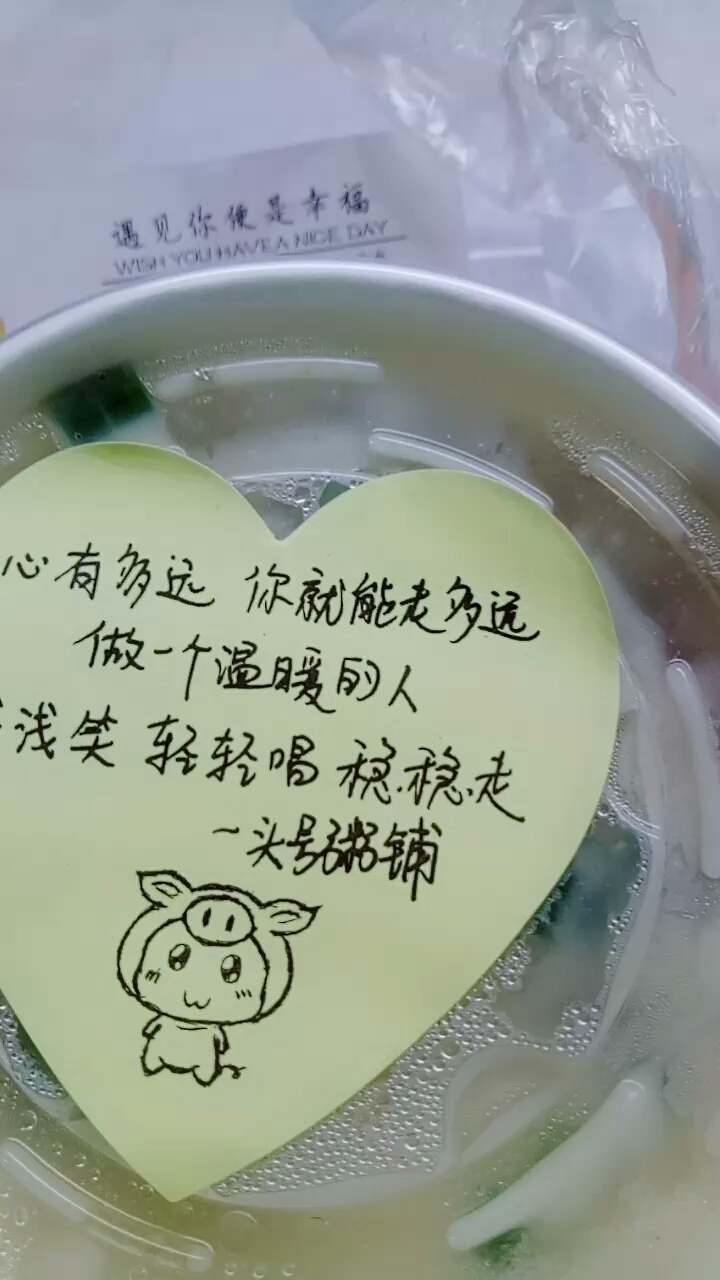 遇见你便是幸福
WISH YOU HAVE A NICE DAY
心有多远 你就能走多远
做一个温暖的人
浅笑 轻轻唱 稳稳走
~头号粥铺